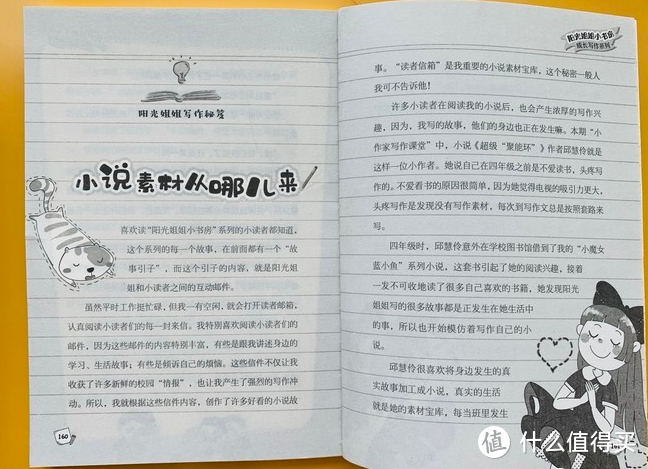 阳光姐姐写作秘笈
小说素材从哪儿来
喜欢读“阳光姐姐小书房”系列的小读者都知道，
这个系列的每一个故事，在前面都有一个“故
事引子”，而这个引子的内容，就是阳光姐
姐和小读者之间的互动邮件。
虽然平时工作挺忙碌，但我一有空闲，就会打开读者邮箱，
认真阅读小读者们的每一封来信。我特别喜欢阅读小读者们的
邮件，因为这些邮件的内容特别丰富，有些是跟我讲述身边的
学习、生活故事；有些是倾诉自己的烦恼。这些信件不仅让我
收获了许多新鲜的校园“情报”，也让我产生了强烈的写作冲
动。所以，我就根据这些信件内容，创作了许多好看的小说故
160
阳光姐姐小书房
成长写作系列
事。“读者信箱”是我重要的小说素材宝库，这个秘密一般人
我可不告诉他！
许多小读者在阅读我的小说后，也会产生浓厚的写作兴
趣，因为，我写的故事，他们的身边也正在发生嘛。本期“小
作家写作课堂”中，小说《超级“聚能环”》作者邱慧伶就是
这样一位小作者。她说自己在四年级之前是不爱读书，头疼写
作的。不爱看书的原因很简单，因为她觉得电视的吸引力更大，
头疼写作是发现没有写作素材，每次到写作文总是按照套路来
写。
四年级时，邱慧伶意外在学校图书馆借到了我的“小魔女
蓝小鱼”系列小说，这套书引起了她的阅读兴趣，接着
一发不可收地读了很多自己喜欢的书籍，她发现阳光
姐姐写的很多故事都是正发生在她生活中
的事，所以也开始模仿着写作自己的小
说。
邱慧伶很喜欢将身边发生的真
实故事加工成小说，真实的生活
就是她的素材宝库，每当班里发生
值 什么值得买